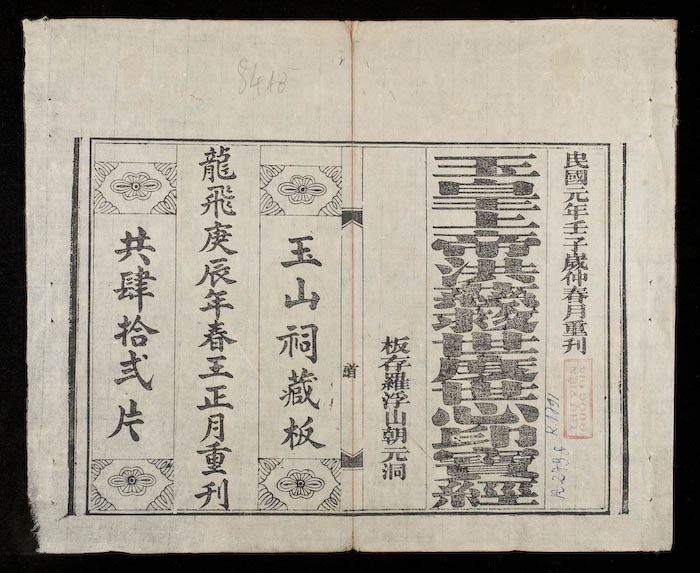 民國元年壬子歲仲春月重刊
玉皇上帝洪慈救世度世心印寶經
板存羅浮山朝元洞
首
玉山祠藏板
龍飛庚辰年春王正月重刊
共肆拾弍片